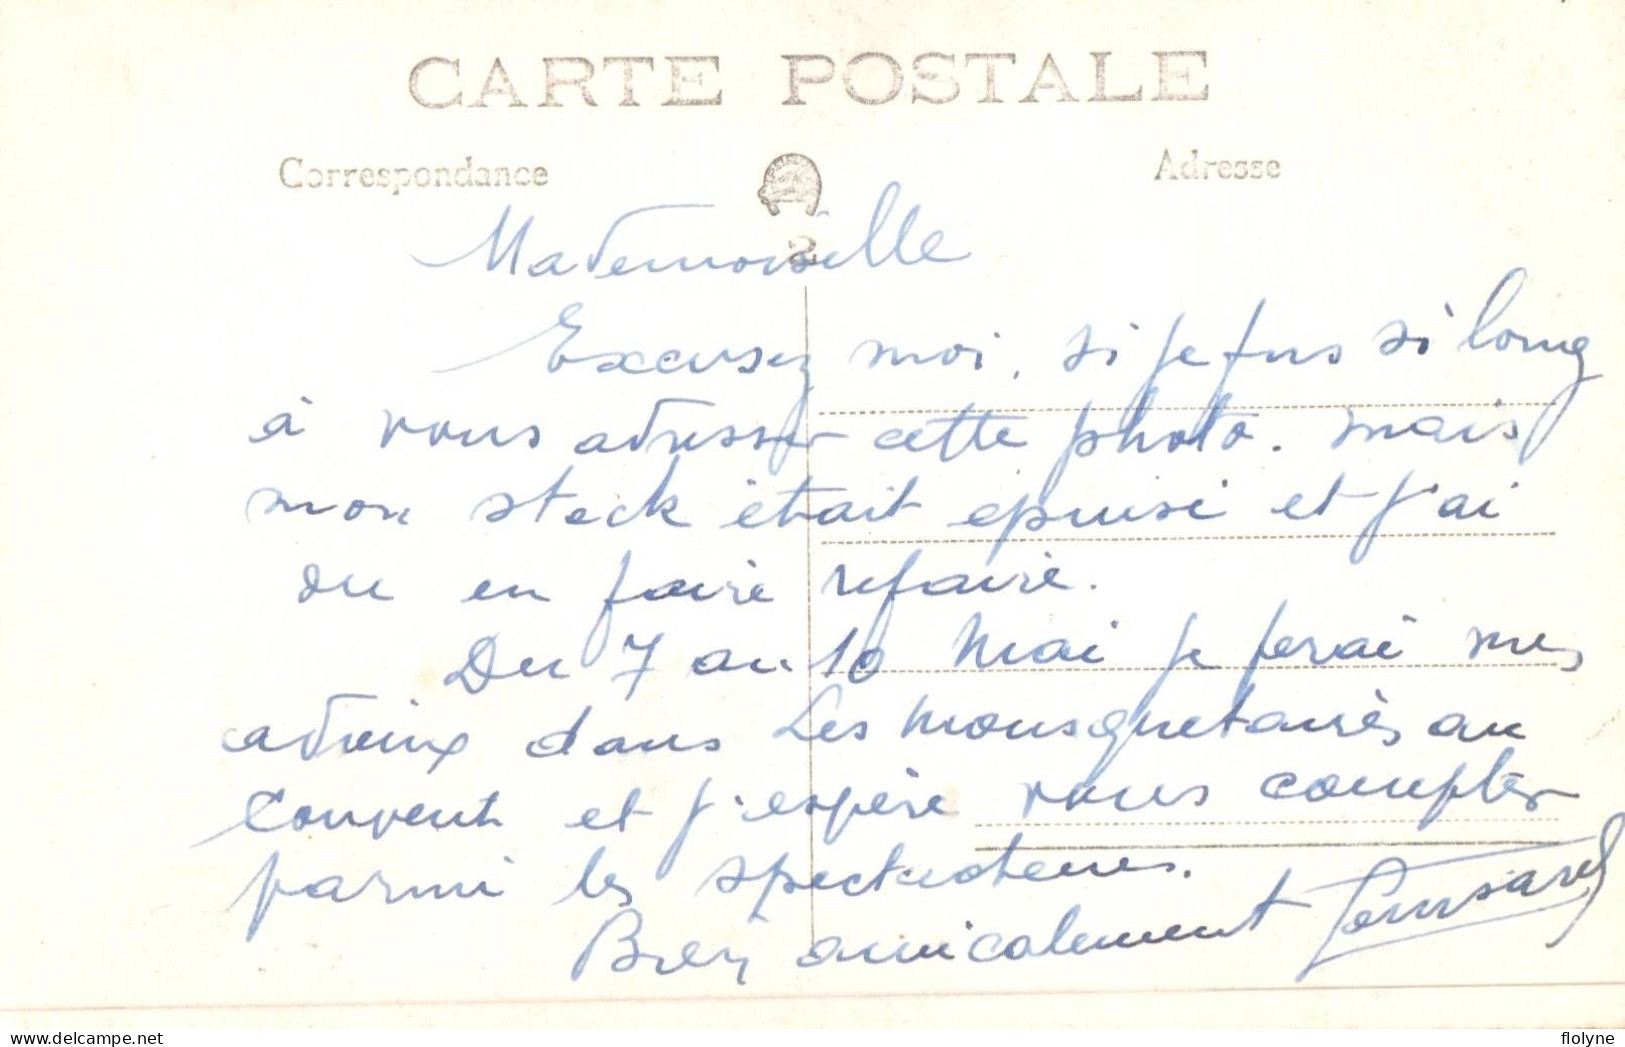 CARTE POSTALE
Correspondance
Adresse
2
Mademoiselle
Excusez moi, si je fus si long
à vous adresser cette photo. mais
mon stock était épuisé et j'ai
du en faire refaire.
Du 7 au 10 Mai je ferai mes
adieux dans Les Mousquetaires au
Couvent et j'espère vous compter
parmi les spectateurs.
Bien amicalement
delcampe.net
flolyne